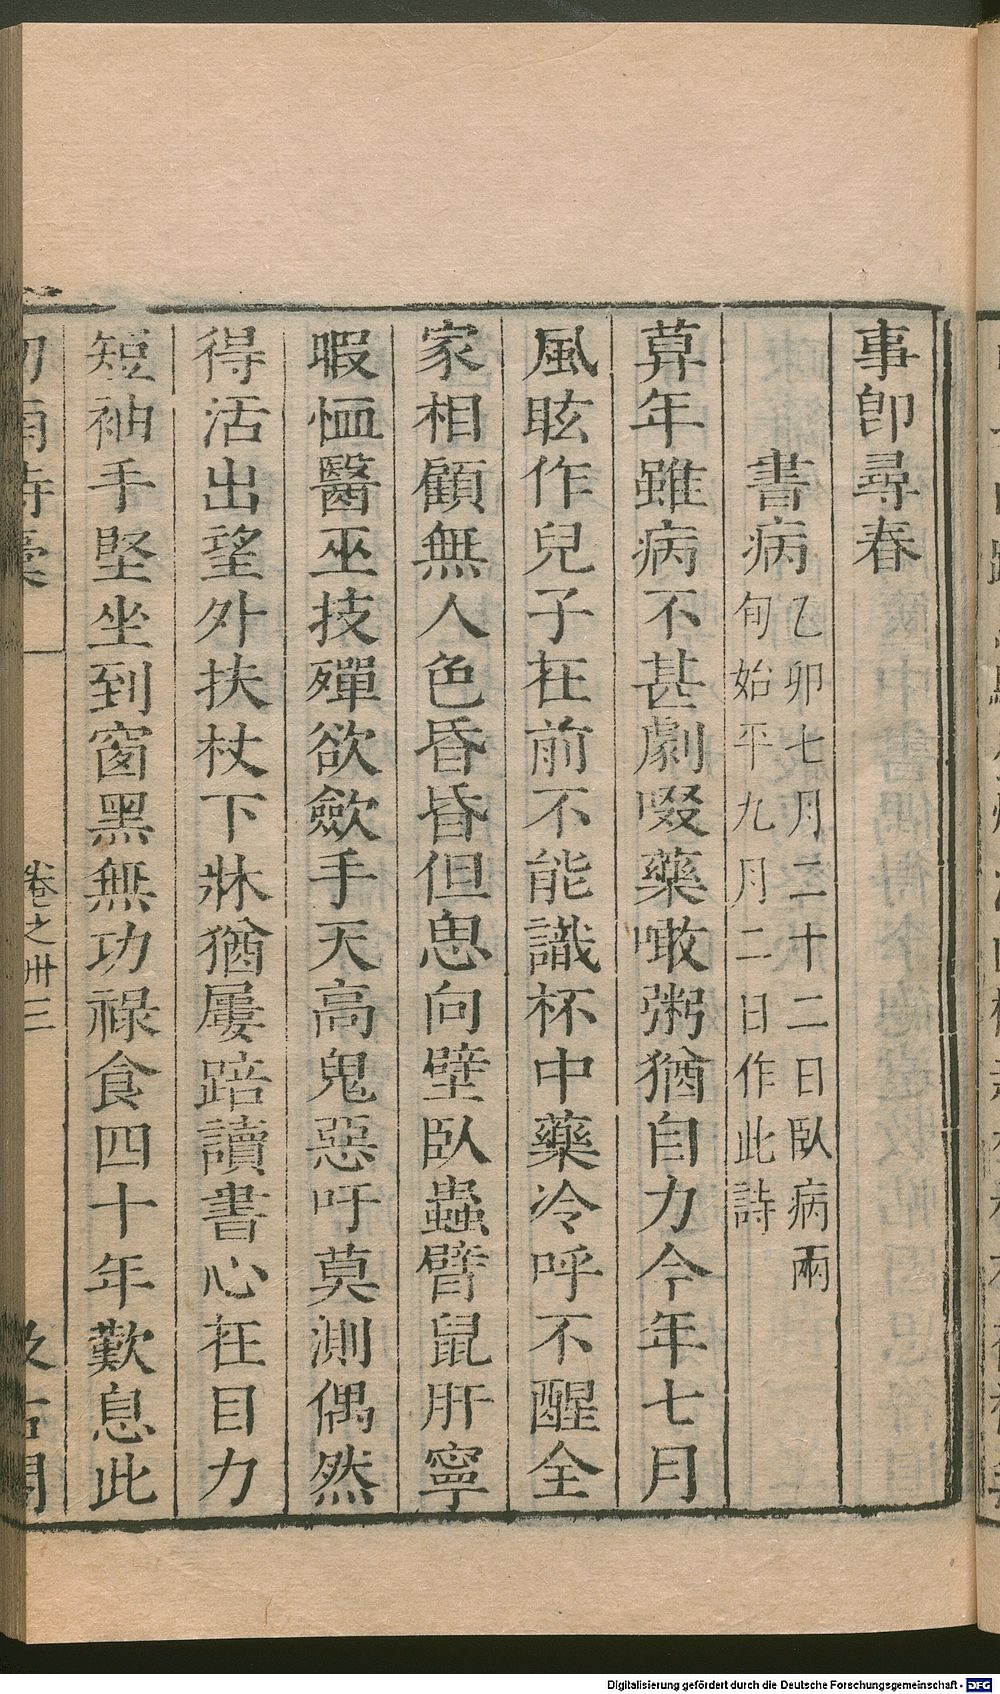 事卽尋春
書病乙卯七月二十二日臥病兩
旬始平九月二日作此詩
莫年雖病不甚劇啜藥噉粥猶自力今年七月
風眩作兒子在前不能識杯中藥冷呼不醒全
家相顧無人色昏昏但思向壁臥蟲臂鼠肝寧
暇恤醫巫技殫欲歛手天高鬼惡吁莫測偶然
得活出望外扶杖下牀猶屢踣讀書心在目力
短袖手堅坐到窗黑無功祿食四十年歎息此
劍南詩稾
卷之卅三
汲古閣
Digitalisierung gefördert durch die Deutsche Forschungsgemeinschaft - DFG